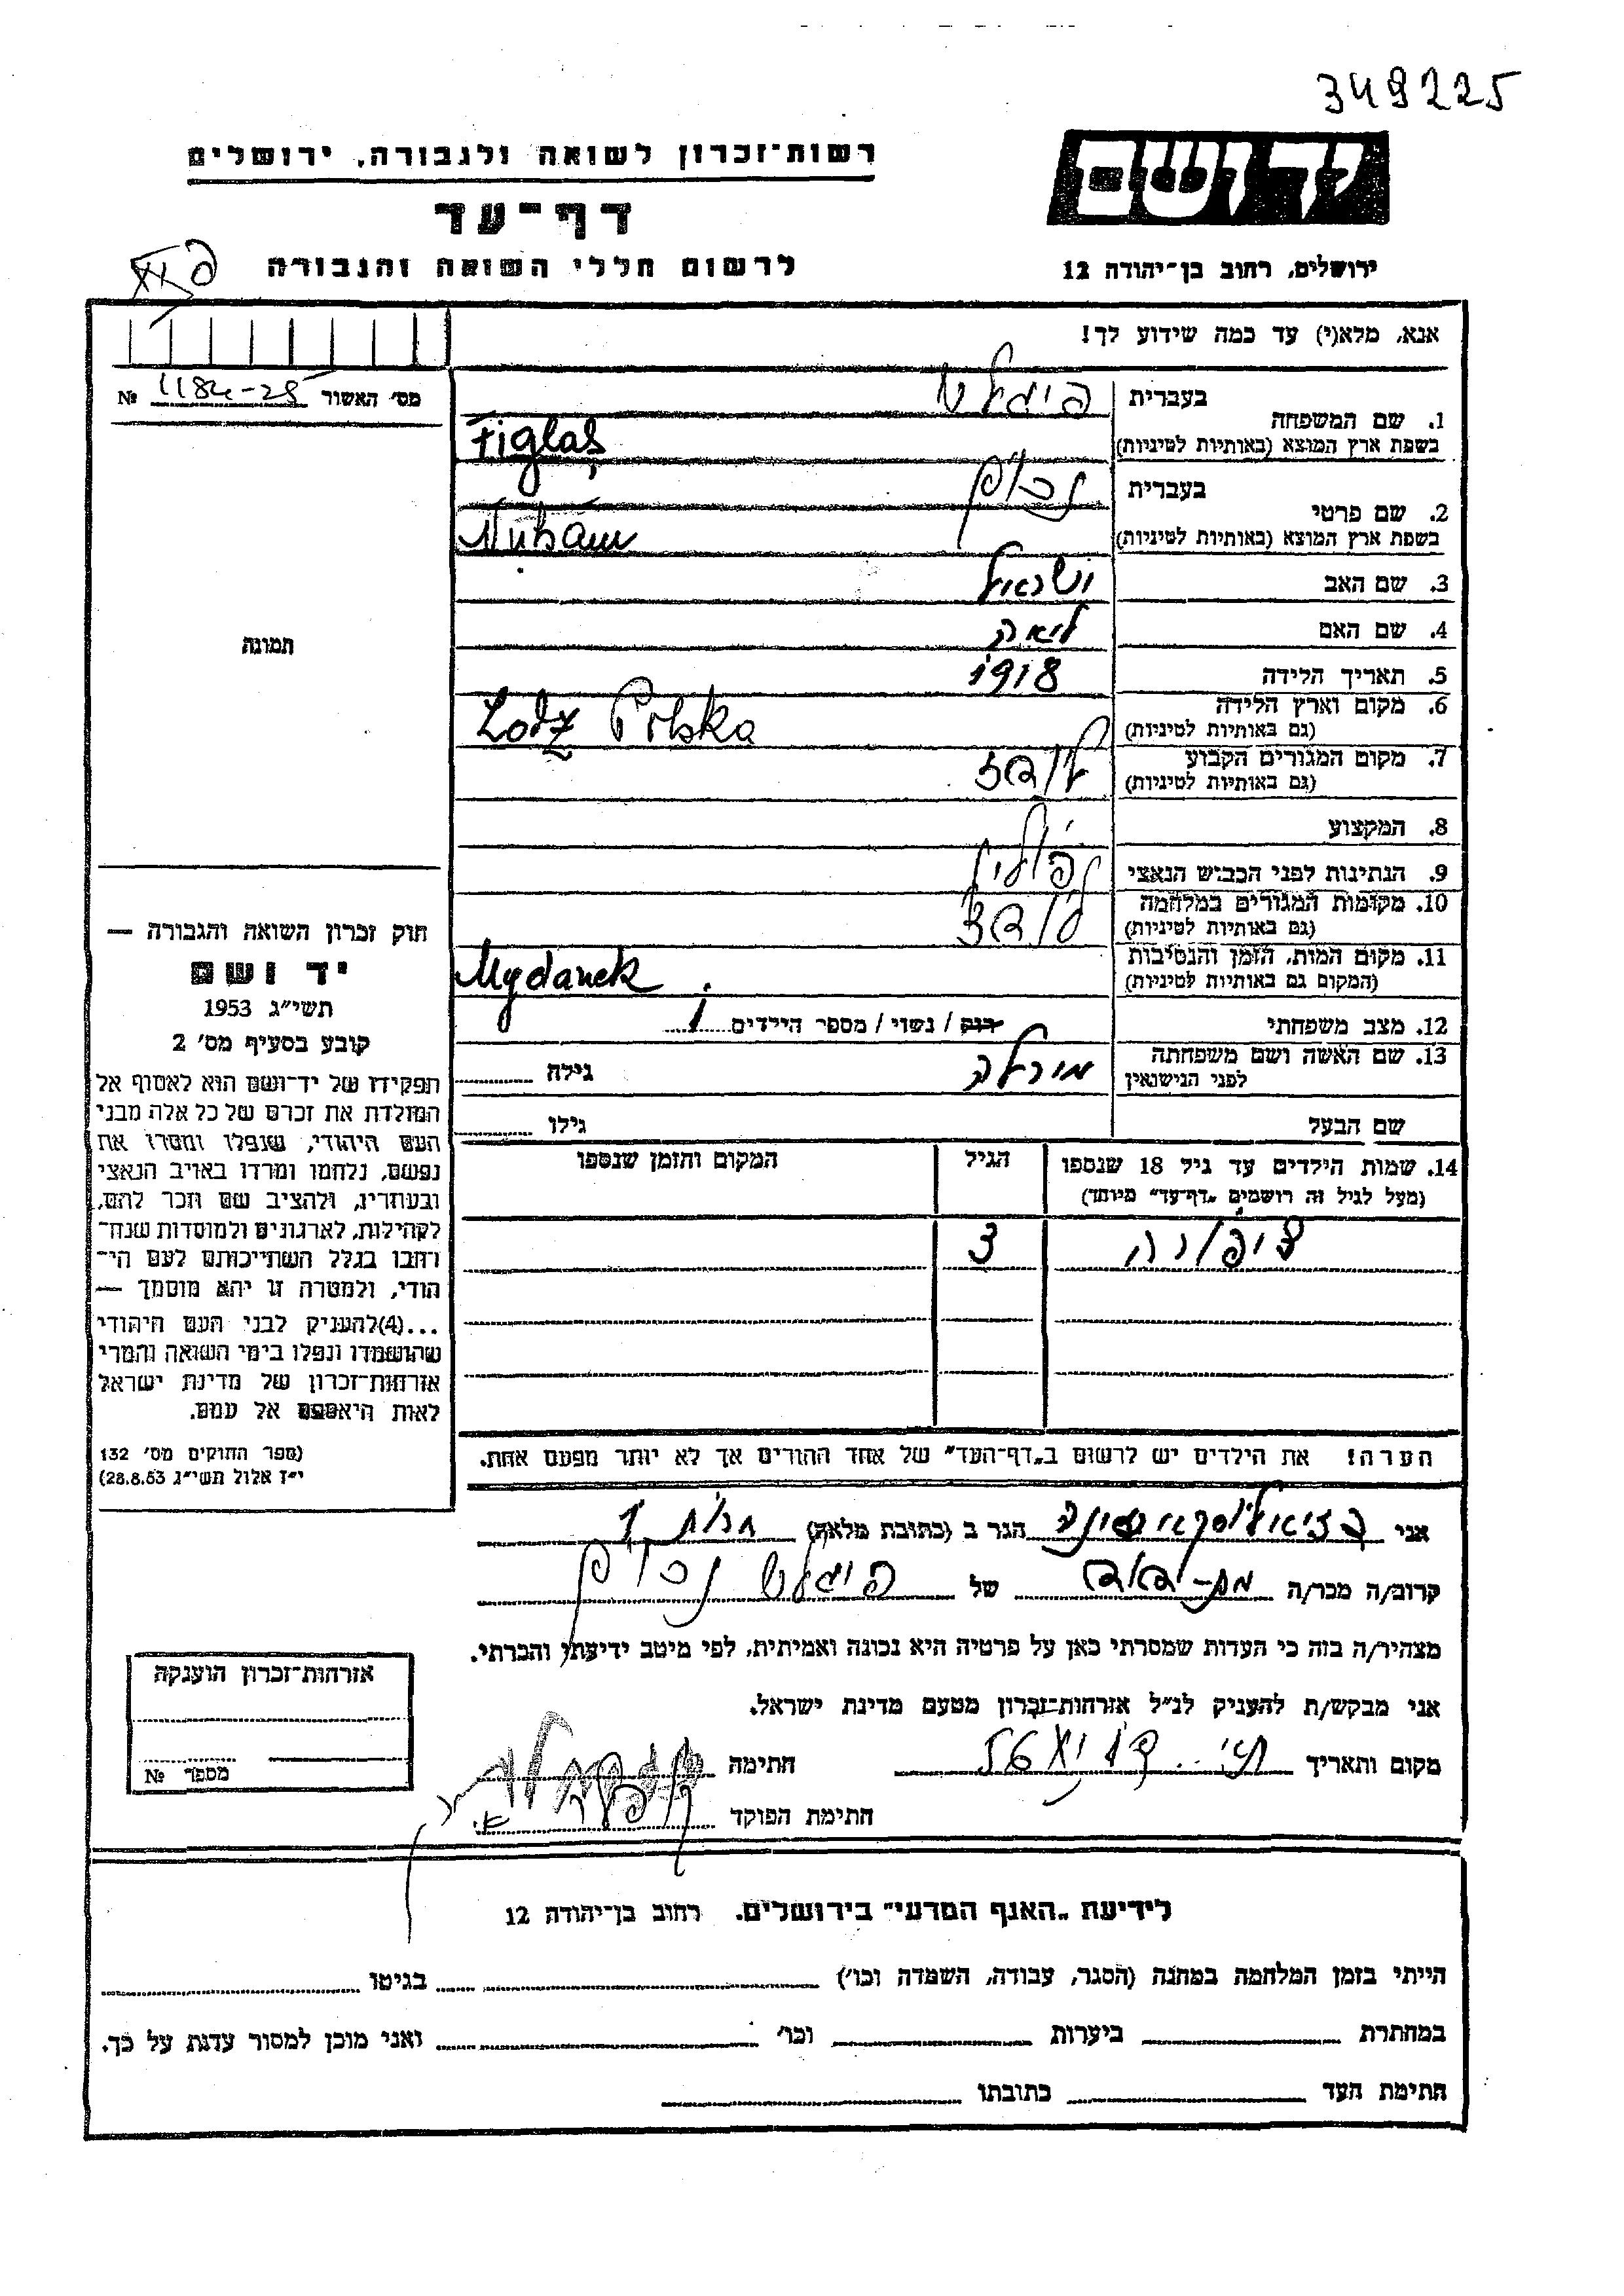 349225
יד ושם
רשות־זכרון לשואה ולגבורה, ירושלים
דף־עד
לרשום חללי השואה והגבורה
ירושלים, רחוב בן־יהודה 12
אנא, מלא(י) עד כמה שידוע לך!
מס׳ האשור 1184-25 №
תמונה
1. שם המשפחה
בעברית פיגלש
בשפת ארץ המוצא (באותיות לטיניות) Figlas
2. שם פרטי
בעברית נכום
בשפת ארץ המוצא (באותיות לטיניות)
3. שם האב ישראל
4. שם האם ליאה
5. תאריך הלידה 1918
6. מקום וארץ הלידה
(גם באותיות לטיניות) Lodz Polska
7. מקום המגורים הקבוע לודז
(גם באותיות לטיניות)
8. המקצוע
9. הנתינות לפני הכבוש הנאצי פולין
10. מקומות המגורים במלחמה לודז
(גם באותיות לטיניות)
11. מקום המות, הזמן והנסיבות
(המקום גם באותיות לטיניות) Mydanek
12. מצב משפחתי רווק / נשוי / מספר הילדים 1
13. שם האשה ושם משפחתה
לפני הנישואין גילה
שם הבעל גילו
14. שמות הילדים עד גיל 18 שנספו
(מעל לגיל זה רושמים „דף־עד" מיוחד)
הגיל
המקום והזמן שנספו
ציפורה 3
הערה! את הילדים יש לרשום ב„דף־העד" של אחד ההורים אך לא יותר מפעם אחת.
חוק זכרון השואה והגבורה —
יד ושם
תשי״ג 1953
קובע בסעיף מס׳ 2
תפקידו של יד־ושם הוא לאסוף אל
המולדת את זכרם של כל אלה מבני
העם היהודי, שנפלו ומסרו את
נפשם, נלחמו ומרדו באויב הנאצי
ובעוזריו, ולהציב שם וזכר להם,
לקהילות, לארגונים ולמוסדות שנח־
רבו בגלל השתייכותם לעם הי־
הודי, ולמטרה זו יהא מוסמך —
...(4)להעניק לבני העם היהודי
שהושמדו ונפלו בימי השואה והמרי
אזרחות־זכרון של מדינת ישראל
לאות היאספם אל עמם.
(ספר החוקים מס׳ 132
י״ז אלול תשי״ג 28.8.53)
אני הגר ב (כתובת מלאה)
קרוב/ה מכר/ה של פיגלש נכום
מצהיר/ה בזה כי העדות שמסרתי כאן על פרטיה היא נכונה ואמיתית, לפי מיטב ידיעתי והכרתי.
אני מבקש/ת להעניק לנ״ל אזרחות־זכרון מטעם מדינת ישראל.
מקום ותאריך חתימה
חתימת הפוקד
אזרחות־זכרון הוענקה
מספר №
לידיעת „האגף המדעי" בירושלים. רחוב בן־יהודה 12
הייתי בזמן המלחמה במחנה (הסגר, עבודה, השמדה וכו׳) בגיטו
במחתרת ביערות וכו׳ ואני מוכן למסור עדות על כך.
חתימת העד כתובתו